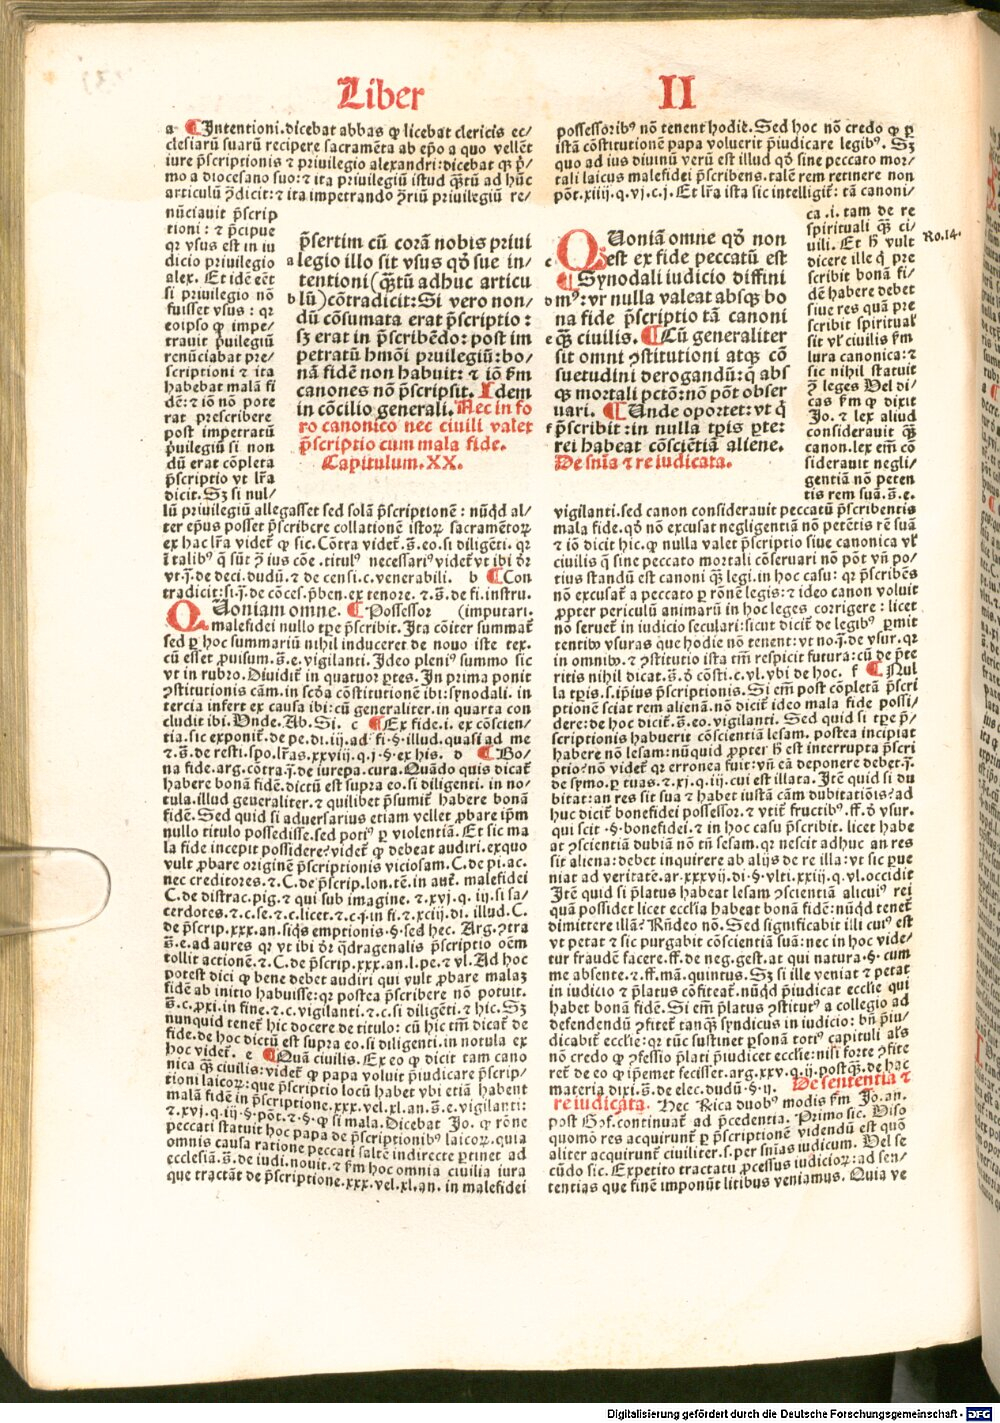 Liber II
a ¶ Intentioni. dicebat abbas ꝙ licebat clericis ec/
clesiarū suarū recipere sacramēta ab ep̄o a quo vellēt
iure p̄scriptionis ⁊ priuilegio alexandri: dicebat
mo a diocesano suo: ⁊ ita priuilegiū istud
articulū ꝯdicit: ⁊ ita impetrando ꝯriū priuilegiū re/
nūciauit p̄scrip
tioni: ⁊ p̄cipue
qr vsus est in iu
dicio priuilegio
alex. Et idē eēt
si priuilegio nō
fuisset vsus: qr
eoipso ꝙ impe/
trauit p̄uilegiū
renūciabat pre/
scriptioni ⁊ ita
habebat malā fi
dē: ⁊ iō nō pote
rat prescribere
post impetratū
p̄uilegiū si non
dū erat cōpleta
p̄scriptio vt lr̄a
dicit. Sꝫ si nul/
lū priuilegiū allegasset sed solā p̄scriptionē: nūqd al/
ter ep̄us posset p̄scribere collationē istoꝝ sacramētoꝝ
ex hac lr̄a videt᷑ ꝙ sic. Cōtra videt᷑. s̄. eo. si diligēti. qr
vt. j̄. de deci. dudū. ⁊ de censi. c. venerabili. b ¶ Con
tradicit: si. j̄. de cōces. p̄ben. ex tenore. ⁊. s̄. de fi. instru.
Quoniam omne. ¶ Possessor (imputari.
malefidei nullo tp̄e p̄scribit. Ita cōiter summat᷑
sed ꝑ hoc summariū nihil induceret de nouo iste tex.
cū esset ꝓuisum. s̄. e. vigilanti. Ideo pleni⁹ summo sic
vt in rubro. Diuidit᷑ in quatuor ꝑtes. In prima ponit
ꝯstitutionis cām. in scd̄a cōstitutionē ibi: synodali. in
tercia infert ex causa ibi: cū generaliter. in quarta con
cludit ibi. Vnde. Ab. Si. c ¶ Ex fide. i. ex cōscien/
tia. sic exponit᷑. de pe. di. iij. ad fi. §. illud. quasi ad me
⁊. s̄. de resti. spo. lr̄as. xxviij. q. j. §. ex his. d ¶ Bo/
na fide. arg. cōtra. j̄. de iurepa. cura. Quādo quis dicat᷑
habere bonā fidē. dictū est supra eo. si diligenti. in no/
tula. illud generaliter. ⁊ quilibet p̄sumit᷑ habere bonā
fidē. Sed quid si aduersarius etiam vellet ꝓbare ip̄m
nullo titulo possedisse. sed poti⁹ ꝑ violentiā. Et sic ma
la fide incepit possidere? videt᷑ ꝙ debeat audiri. exquo
vult ꝓbare originē p̄scriptionis viciosam. C. de pi. ac.
nec creditores. ⁊. C. de p̄scrip. lon. tē. in aut̄. malefidei
C. de distrac. pig. ⁊ qui sub imagine. ⁊. xvj. q. iij. si sa/
cerdotes. ⁊. c. se. ⁊. c. licet. ⁊. c. j. in fi. ⁊. xciij. di. illud. C.
de p̄scrip. xxx. an. siq̄s emptionis. §. sed hec. Arg. ꝯtra
s̄. e. ad aures qr vt ibi dr̄ q̄dragenalis p̄scriptio oēm
tollit actionē. ⁊. C. de p̄scrip. xxx. an. l. pe. ⁊ vl. Ad hoc
potest dici ꝙ bene debet audiri qui vult ꝓbare malaꝫ
fidē ab initio habuisse: qr postea p̄scribere nō potuit.
s̄. c. ꝓxi. in fine. ⁊. c. vigilanti. ⁊. c. si diligēti. ⁊ hic. Sꝫ
nunquid tenet᷑ hic docere de titulo: cū hic tm̄ dicat᷑ de
fide. de hoc dictū est supra eo. si diligenti. in notula ex
hoc videt᷑. e ¶ Quā ciuilis. Ex eo ꝙ dicit tam cano
nica q̄ꝫ ciuilis: videt᷑ ꝙ papa voluit p̄iudicare p̄scrip/
tioni laicoꝝ: que p̄scriptio locū habet vbi etiā habent
malā fidē in p̄scriptione. xxx. vel. xl. an. s̄. e. vigilanti:
⁊. xvj. q. iij. §. pōt. ⁊. §. ꝙ si mala. Dicebat Jo. ꝙ rōne
peccati statuit hoc papa de p̄scriptionib⁹ laicoꝝ. quia
omnis causa ratione peccati saltē indirecte ꝑtinet ad
ecclesiā. s̄. de iudi. nouit. ⁊ fm̄ hoc omnia ciuilia iura
que tractāt de p̄scriptione. xxx. vel. xl. an. in malefidei
p̄sertim cū corā nobis priui
a legio illo sit vsus qd̄ sue in/
tentioni (q̄ꝫtū adhuc articu
b lū) cōtradicit: Si vero non/
dū cōsumata erat p̄scriptio:
sꝫ erat in p̄scribēdo: post im
petratū hmōi pruilegiū: bo/
nā fidē non habuit: ⁊ iō fm̄
canones nō p̄scripsit. Idem
in cōcilio generali. Nec in fo
ro canonico nec ciuili valet
p̄scriptio cum mala fide.
Capitulum. XX.
possessorib⁹ nō tenent hodie. Sed hoc nō credo ꝙ ꝑ
istā cōstitutionē papa voluerit p̄iudicare legib⁹. Sꝫ
quo ad ius diuinū verū est illud qd̄ sine peccato mor/
tali laicus malefidei p̄scribens. talē rem retinere non
pōt. xiiij. q. vj. c. j. Et lr̄a ista sic intelligit᷑: tā canoni/
ca. i. tam de re
spirituali q̄ꝫ ci/
uili. Et h̄ vult
dicere ille ꝙ pre
scribit bonā fi/
dē habere debet
siue res quā pre
scribit spiritual᷑
sit vl᷑ ciuilis fm̄
iura canonica: ⁊
sic nihil statuit
ꝯ̄ leges Vel di/
cas fm̄ ꝙ dixit
Jo. ⁊ lex aliud
considerauit q̄ꝫ
canon. lex em̄ cō
siderauit negli/
gentiā nō peten
tis rem suā. s̄. e.
Ro. 14.
Quoniā omne qd̄ non
c est ex fide peccatū est
¶ Synodali iudicio diffini
d m⁹: vt nulla valeat absqꝫ bo
na fide p̄scriptio tā canoni
e q̄ꝫ ciuilis. ¶ Cū generaliter
sit omni ꝯstitutioni atqꝫ cō
suetudini derogandū: q̄ abs
qꝫ mortali pctō: nō pōt obser
uari. ¶ Unde oportet: vt q̄
f p̄scribit: in nulla tp̄is ꝑte:
rei habeat cōsciētiā aliene.
De sn̄ia ⁊ re iudicata.
vigilanti. sed canon considerauit peccatū p̄scribentis
mala fide. qd̄ nō excusat negligentiā nō petētis rē suā
⁊ iō dicit hic. ꝙ nulla valet p̄scriptio siue canonica vl᷑
ciuilis q̄ sine peccato mortali cōseruari nō pōt vn̄ po/
tius standū est canoni q̄ꝫ legi. in hoc casu: qr p̄scribēs
nō excusat᷑ a peccato ꝑ rōnē legis: ⁊ ideo canon voluit
ꝓpter periculū animarū in hoc leges corrigere: licet
nō seruet᷑ in iudicio seculari: sicut dicit᷑ de legib⁹ ꝑmit
tentib⁹ vsuras que hodie nō tenent: vt no. j̄. de vsur. qr
in omnib⁹. ⁊ ꝯstitutio ista tm̄ respicit futura: cū de p̄te
ritis nihil dicat. s̄. d̄ cōsti. c. vl. vbi de hoc. f ¶ Nul
la tp̄is. s. ipius p̄scriptionis. Si em̄ post cōpletā p̄scri
ptionē sciat rem alienā. nō dicit᷑ ideo mala fide possi/
dere: de hoc dicit᷑. s̄. eo. vigilanti. Sed quid si tp̄e p̄/
scriptionis habuerit cōscientiā lesam. postea incipiat
habere nō lesam: nūquid ꝓpter h̄ est interrupta p̄scri
ptio? nō videt᷑ qr erronea fuit: vn̄ eā deponere debet. j̄.
de symo. ꝑ tuas. ⁊. xj. q. iij. cui est illata. Itē quid si du
bitat: an res sit sua ⁊ habet iustā cām dubitatiōis? ad
huc dicit᷑ bonefidei possessor. ⁊ vtit᷑ fructib⁹. ff. d̄ vsur.
qui scit. §. bonefidei. ⁊ in hoc casu p̄scribit. licet habe
at ꝯscientiā dubiā nō tn̄ lesam. qr nescit adhuc an res
sit aliena: debet inquirere ab alijs de re illa: vt sic ꝑue
niat ad veritatē. ar. xxxvij. di. §. vlti. xxiij. q. vl. occidit
Itē quid si p̄latus habeat lesam ꝯscientiā alicui⁹ rei
quā possidet licet ecclīa habeat bonā fidē: nūqd tenet᷑
dimittere illā? Rn̄deo nō. Sed significabit illi cui⁹ est
vt petat ⁊ sic purgabit cōscientiā suā: nec in hoc vide/
tur fraudē facere. ff. de neg. gest. at qui natura. §. cum
me absente. ⁊. ff. mā. quintus. Sꝫ si ille veniat ⁊ petat
in iudicio ⁊ p̄latus cōfiteat᷑. nūqd p̄iudicat ecclie qui
habet bonā fidē. Si em̄ p̄latus ꝯstitut⁹ a collegio ad
defendendū ꝯfitet᷑ tanq̄ꝫ syndicus in iudicio: bn̄ p̄iu/
dicabit ecclie: qr tūc sustinet ꝑsonā toti⁹ capituli als̄
nō credo ꝙ ꝯfessio p̄lati p̄iudicet ecclie: nisi forte ꝯfite
ret᷑ de eo ꝙ ip̄emet fecisset. arg. xxv. q. ij. postq̄ꝫ. de hac
materia dixi. s̄. de elec. dudū. §. ij. De sententia ⁊
re iudicata. Hec Rica duob⁹ modis fm̄ Jo. an.
post Gof. continuat᷑ ad p̄cedentia. Primo sic. Viso
quomō res acquirunt᷑ ꝑ p̄scriptionē videndū est quō
aliter acquirunt᷑ ciuiliter. s. per sn̄ias iudicum. Vel se
cūdo sic. Expetito tractatu ꝓcessus iudicioꝝ: ad sen/
tentias que finē imponūt litibus veniamus. Quia ve
Digitalisierung gefördert durch die Deutsche Forschungsgemeinschaft - DFG